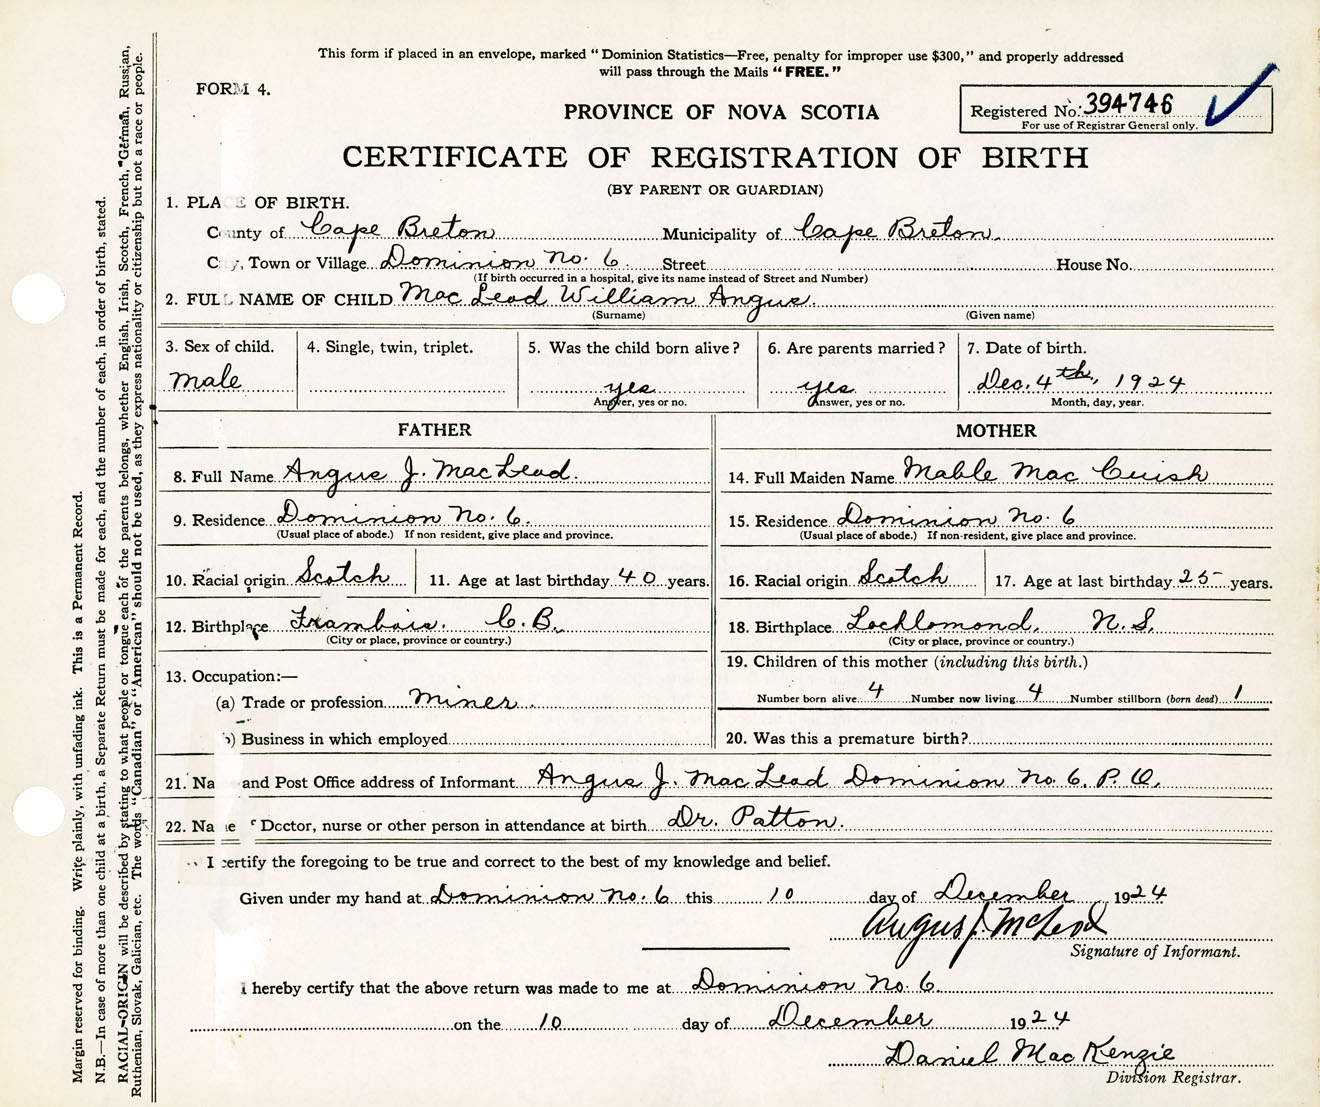 This form if placed in an envelope, marked “Dominion Statistics—Free, penalty for improper use $300,” and properly addressed
will pass through the Mails “FREE.”
FORM 4.
PROVINCE OF NOVA SCOTIA
Registered No. 394746
For use of Registrar General only.
CERTIFICATE OF REGISTRATION OF BIRTH
(BY PARENT OR GUARDIAN)
1. PLACE OF BIRTH.
County of Cape Breton Municipality of Cape Breton.
City, Town or Village Dominion No. 6. Street House No.
(If birth occurred in a hospital, give its name instead of Street and Number)
2. FULL NAME OF CHILD Mac Leod William Angus.
(Surname) (Given name)
3. Sex of child. 4. Single, twin, triplet. 5. Was the child born alive? 6. Are parents married? 7. Date of birth.
Male yes yes Dec. 4th, 1924
Answer, yes or no. Answer, yes or no. Month, day, year.
FATHER MOTHER
8. Full Name Angus J. MacLeod. 14. Full Maiden Name Mable Mac Cuish
9. Residence Dominion No. 6. 15. Residence Dominion No. 6
(Usual place of abode.) If non resident, give place and province. (Usual place of abode.) If non-resident, give place and province.
10. Racial origin Scotch 11. Age at last birthday 40 years. 16. Racial origin Scotch 17. Age at last birthday 25 years.
12. Birthplace Frambois. C.B. 18. Birthplace Lochlomond, N.S.
(City or place, province or country.) (City or place, province or country.)
13. Occupation:— 19. Children of this mother (including this birth.)
(a) Trade or profession Miner. Number born alive 4 Number now living 4 Number stillborn (born dead) 1
b) Business in which employed 20. Was this a premature birth?
21. Na and Post Office address of Informant Angus J. MacLeod Dominion No. 6. P. O.
22. Name Doctor, nurse or other person in attendance at birth Dr. Patton.
I certify the foregoing to be true and correct to the best of my knowledge and belief.
Given under my hand at Dominion No. 6 this 10 day of December 1924
Angus J. McLeod
Signature of Informant.
I hereby certify that the above return was made to me at Dominion No. 6.
on the 10 day of December 1924
Daniel MacKenzie
Division Registrar.
Margin reserved for binding. Write plainly, with unfading ink. This is a Permanent Record.
N.B.—In case of more than one child at a birth, a Separate Return must be made for each, and the number of each, in order of birth, stated.
RACIAL ORIGIN will be described by stating to what people or tongue each of the parents belongs, whether English, Irish, Scotch, French, German, Russian,
Ruthenian, Slovak, Galician, etc. The words “Canadian” or “American” should not be used, as they express nationality or citizenship but not a race or people.